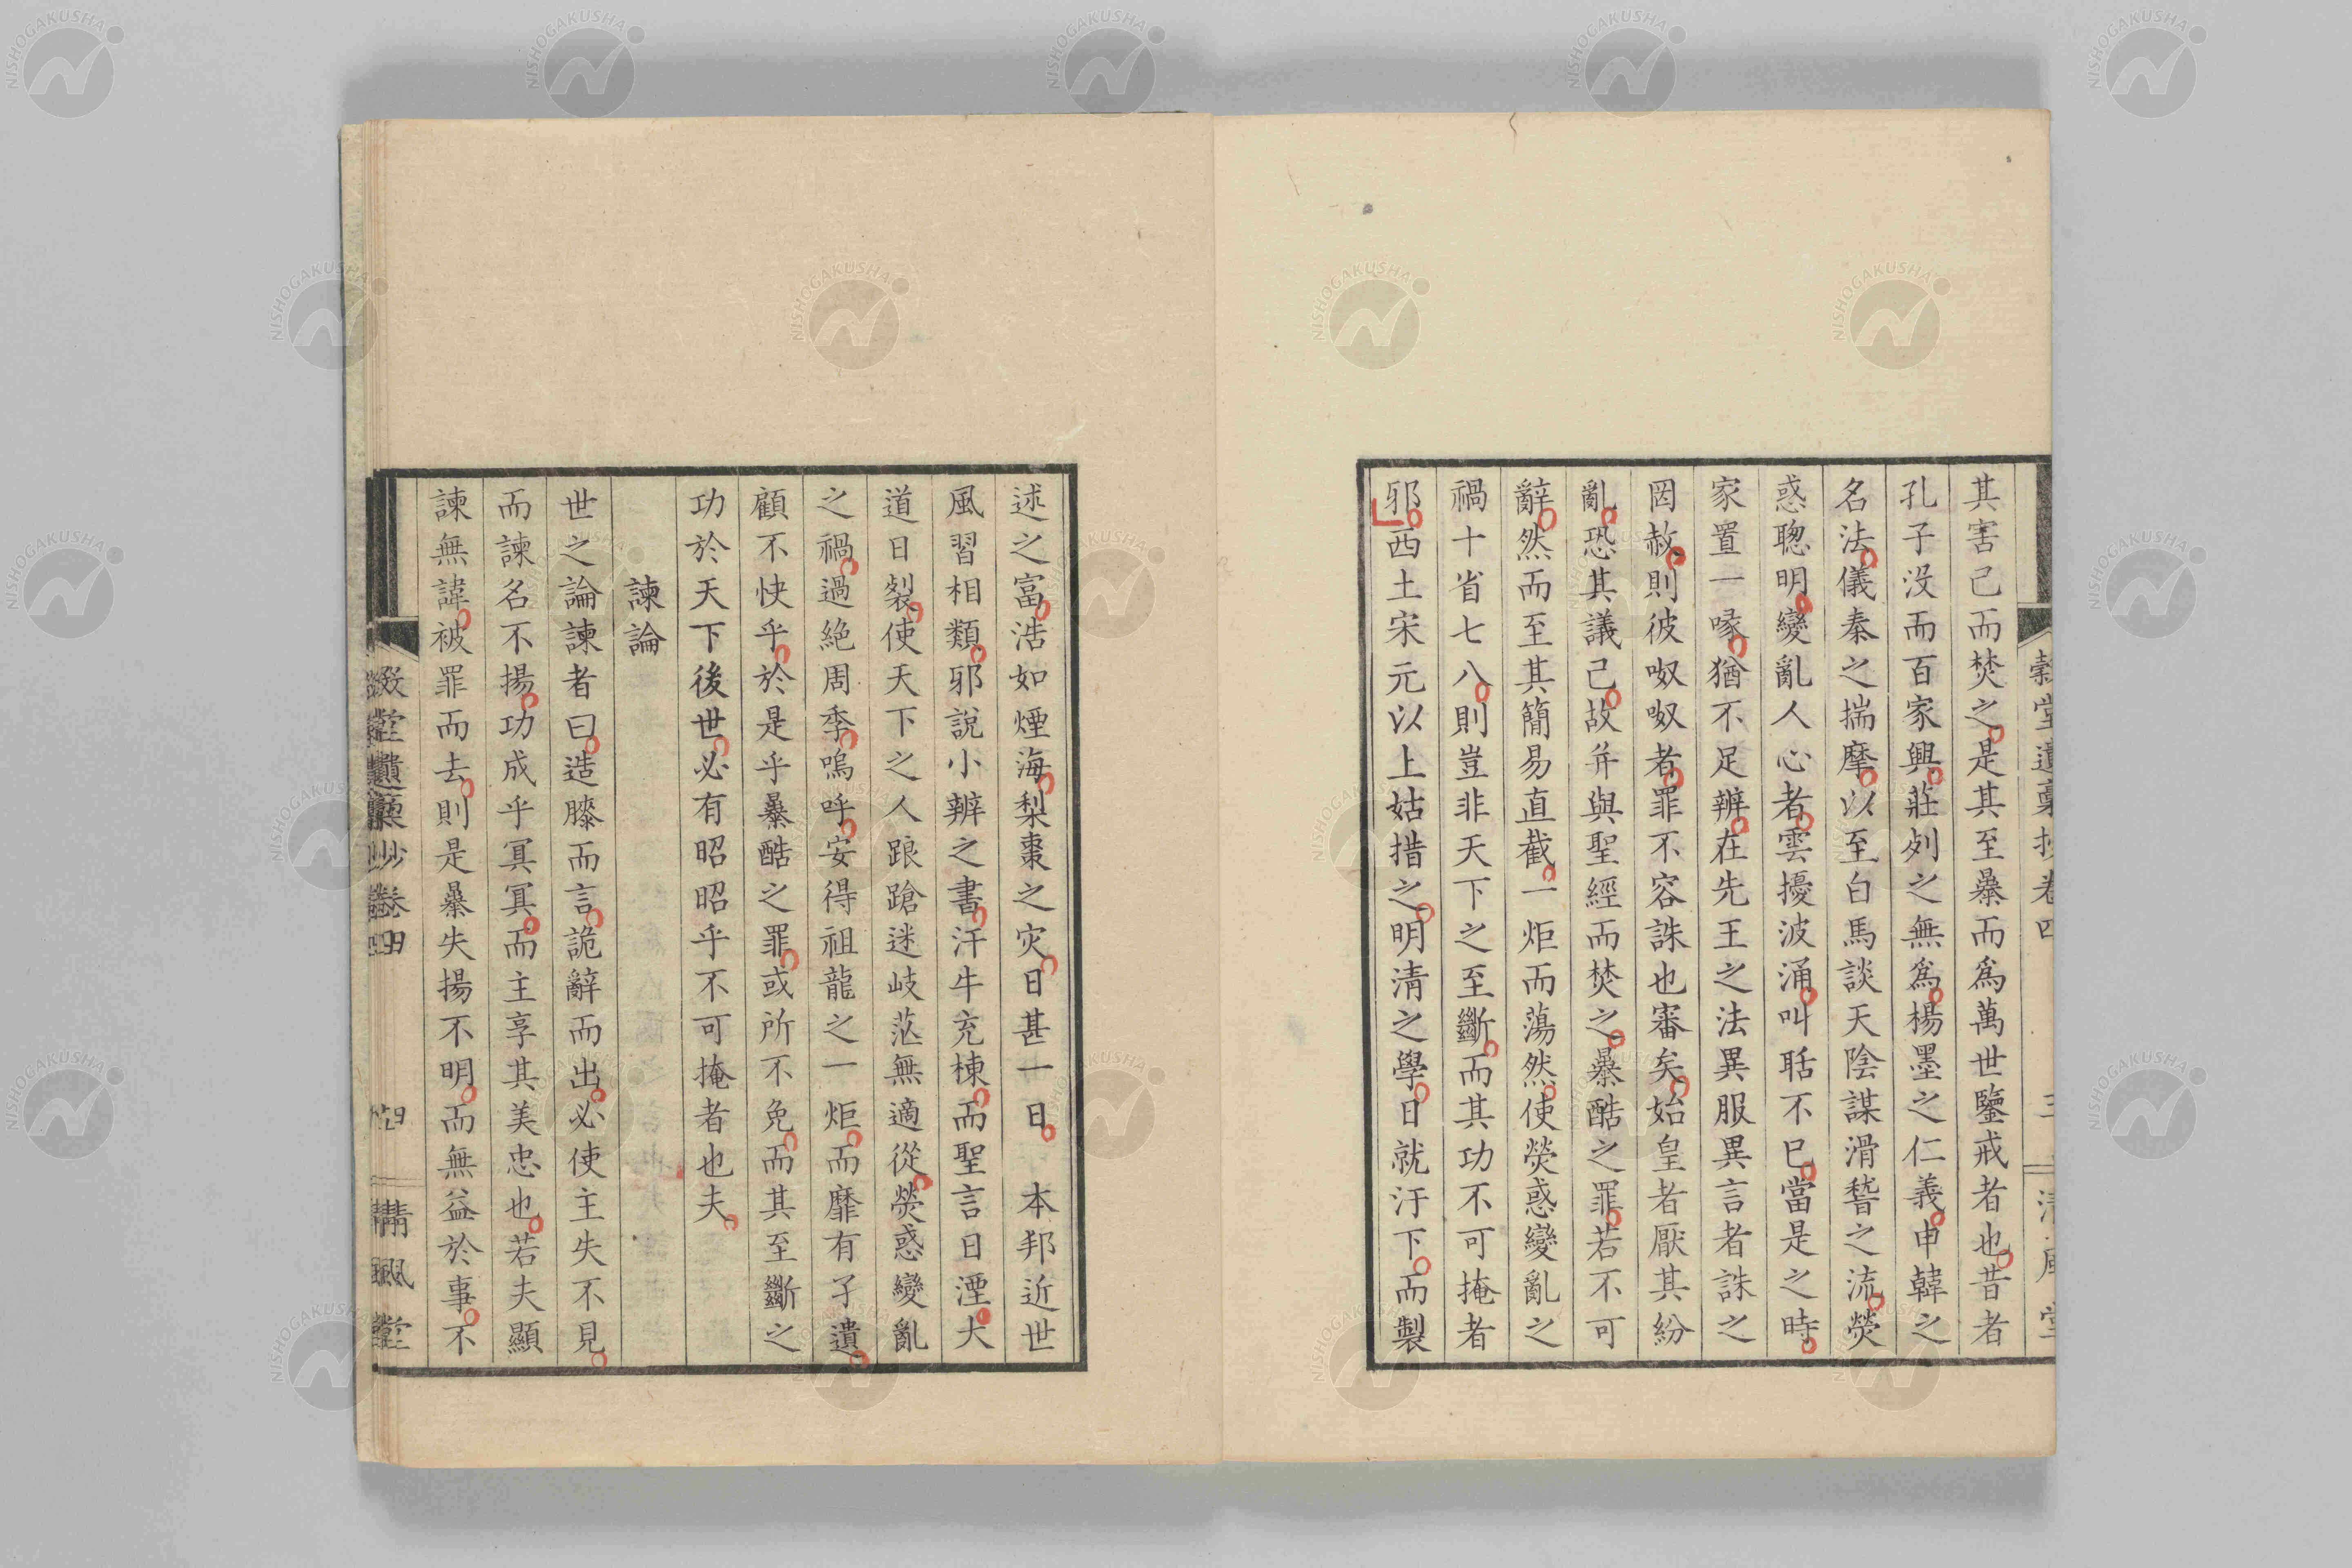 其害已而焚之是其至暴而爲萬世鑒戒者也昔者
孔子没而百家興莊列之無爲楊墨之仁義申韓之
名法儀秦之揣摩以至白馬談天陰謀滑稽之流熒
惑聰明變亂人心者雲擾波涌叫聒不已當是之時
家置一喙猶不足辨在先王之法異服異言者誅之
罔赦則彼呶呶者罪不容誅也審矣始皇者厭其紛
亂恐其議己故并與聖經而焚之暴酷之罪若不可
辭然而至其簡易直截一炬而蕩然使熒惑變亂之
禍十省七八則豈非天下之至斷而其功不可掩者
邪西土宋元以上姑措之明清之學日就汙下而製
述之富浩如煙海梨棗之灾日甚一日 本邦近世
風習相類邪說小辨之書汗牛充棟而聖言日湮大
道日裂使天下之人踉蹌迷岐茫無適從熒惑變亂
之禍過絶周季嗚呼安得祖龍之一炬而靡有孑遺
顧不快乎於是乎暴酷之罪或所不免而其至斷之
功於天下後世必有昭昭乎不可掩者也夫
諫論
世之論諫者曰造膝而言詭辭而出必使主失不見
而諫名不揚功成乎冥冥而主享其美忠也若夫顯
諫無諱被罪而去則是暴失揚不明而無益於事不
堂遺稾抄卷四 四 清風堂
NISHOGAKUSHA